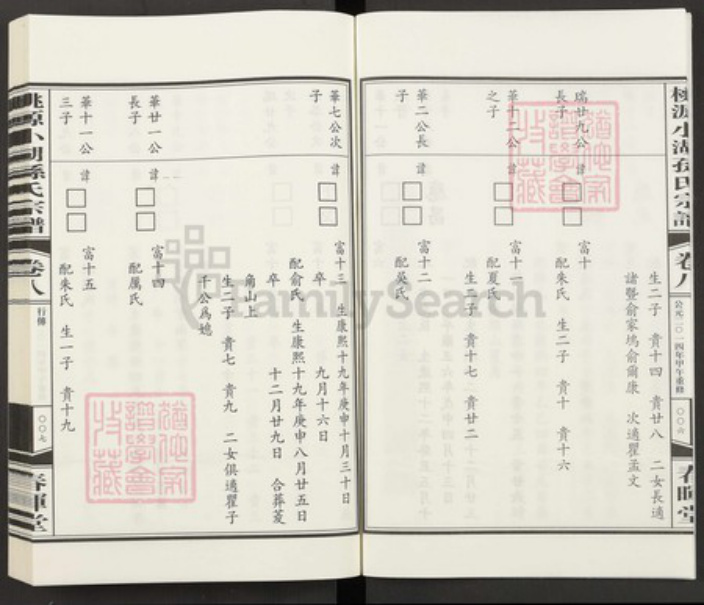 桃源小湖孫氏宗譜
卷八
公元二〇一四年甲午重修
〇〇六
春暉堂
生二子 貴十四 貴廿八 二女長適
諸暨俞家塢俞爾康 次適瞿孟文
瑞廿九公
長子
諱□□
富十
配朱氏 生二子 貴十 貴十六
華十二公
之子
諱□□
富十一
配夏氏
生二子 貴十七 貴廿二
華二公長
子
諱□□
富十二
配吳氏
華七公次
子
諱□□
富十三 生康熙十九年庚申十月三十日
卒 九月十六日
配俞氏 生康熙十九年庚申八月廿五日
卒 十二月廿九日 合葬菱
角山上
生二子 貴七 貴九 二女俱適瞿子
千公為媳
華廿一公
長子
諱□□
富十四
配厲氏
華十一公
三子
諱□□
富十五
配朱氏 生一子 貴十九
桃源小湖孫氏宗譜
卷八
行傳
〇〇七
春暉堂
FamilySearch